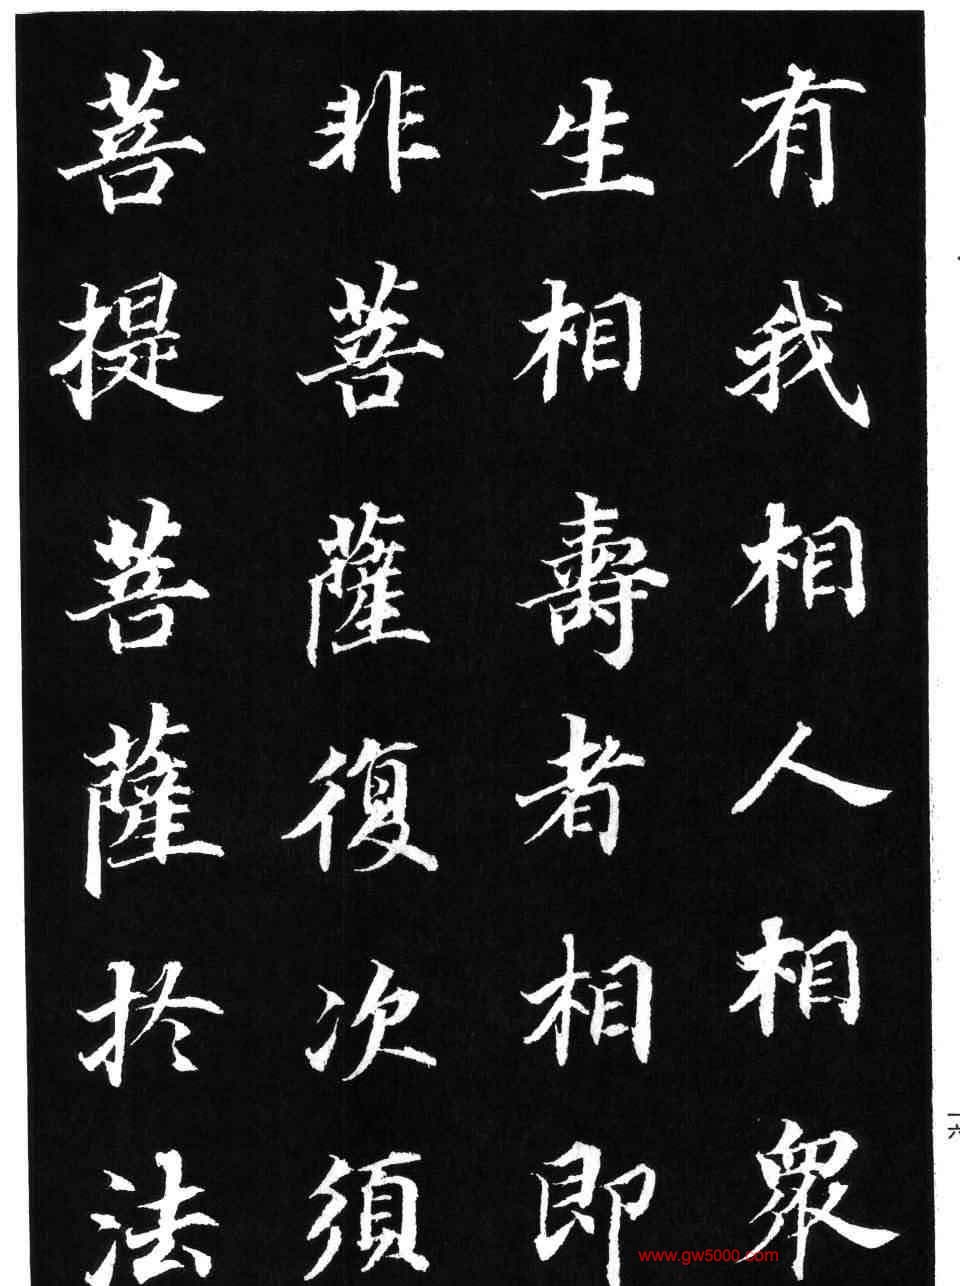 有我相人相眾
生相壽者相即
非菩薩復次須
菩提菩薩扵法
一六
www.gw5000.com